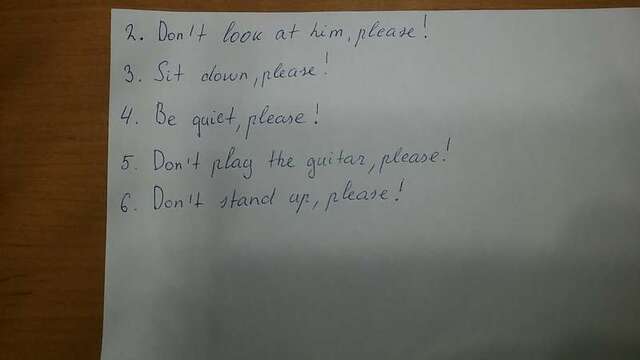 2. Don't look at him, please!
3. Sit down, please!
4. Be quiet, please!
5. Don't play the guitar, please!
6. Don't stand up, please!